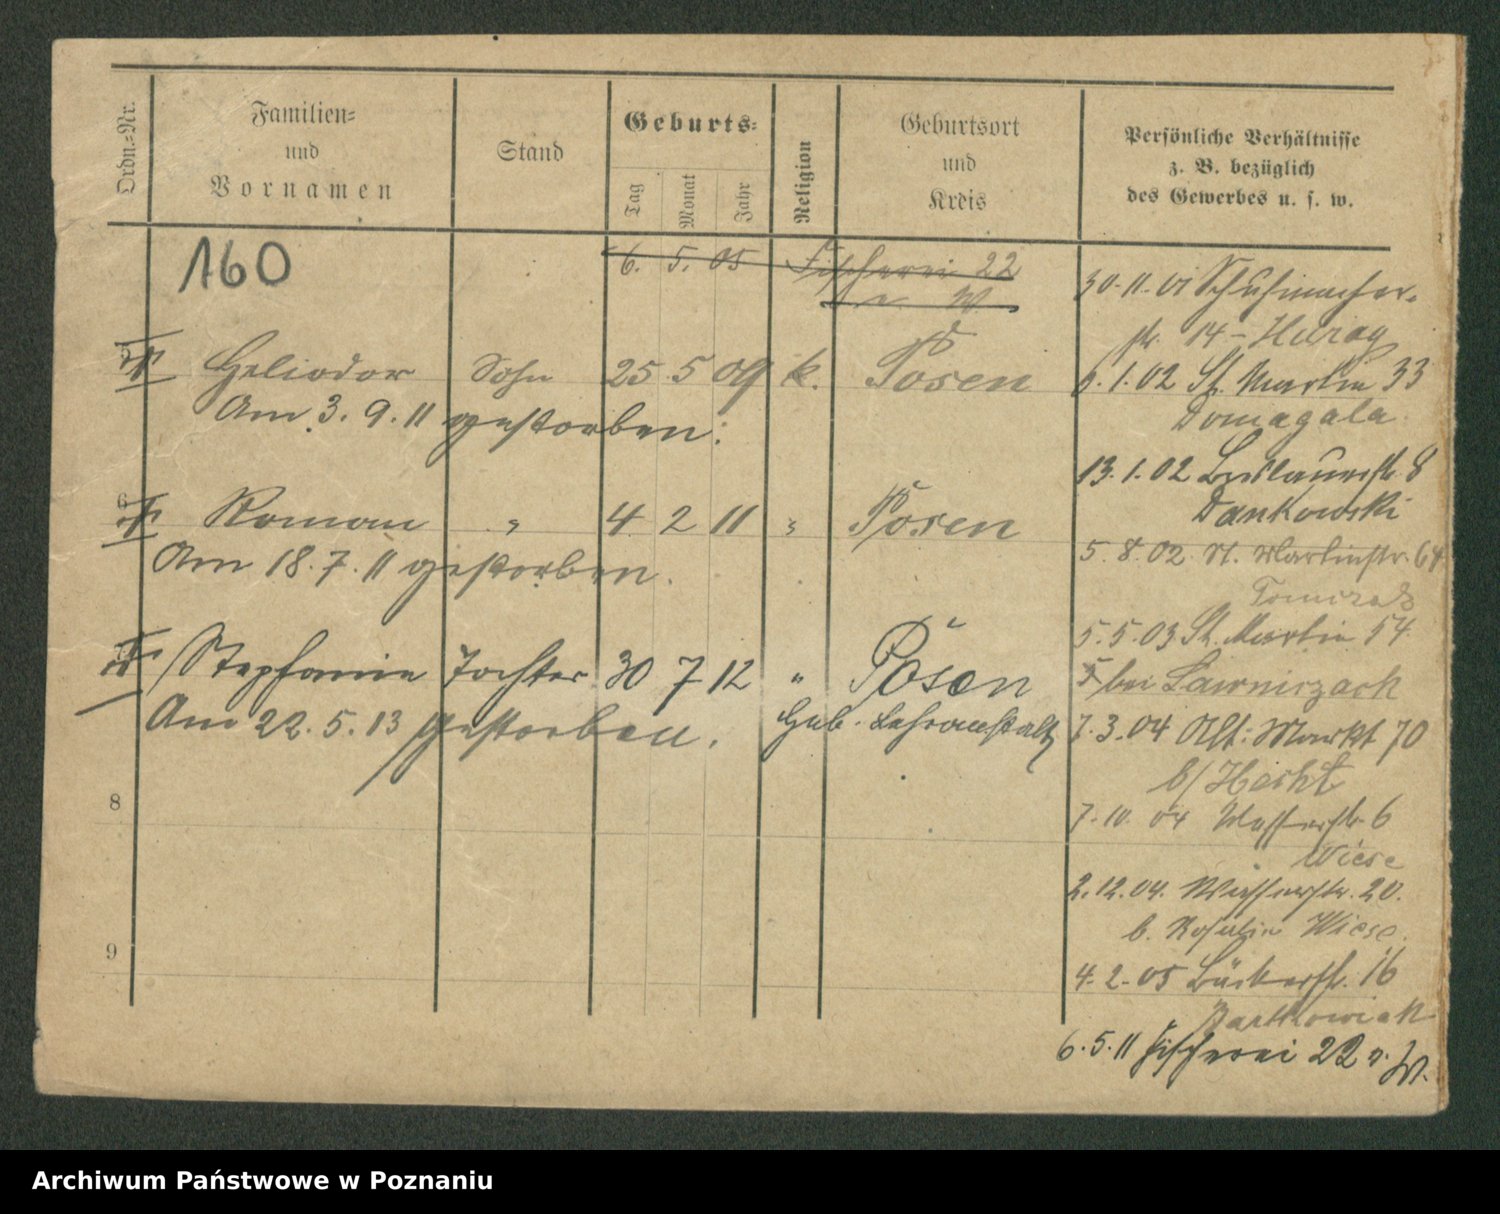 Ordn.-Nr.
Familien-
und
Vornamen
Stand
Geburts-
Tag
Monat
Jahr
Religion
Geburtsort
und
Kreis
Persönliche Verhältnisse
z. B. bezüglich
des Gewerbes u. s. w.
160
6. 5. 05 Fischerei 22
W.
5 Heliodor Sohn 25 5 09 k. Posen
Am 3. 9. 11 gestorben.
6 Roman " 4 2 11 " Posen
Am 18. 7. 11 gestorben.
Stephanie Tochter 30 7 12 " Posen
Am 22. 5. 13 gestorben. Heb. Lehranstalt
8
9
30. 11. 01 Schuhmacher-
str. 14 -
6. 1. 02 St. Martin 33
Domagala
13. 1. 02 Breslauerstr. 8
Dankowski
5. 8. 02 St. Martinstr. 64
Tomczak
5. 5. 03 St. Martin 54
bei Lawniczack
7. 3. 04 Alt. Markt 70
b/ Hecht
7. 10. 04 Wasserstr. 6
Wiese
2. 12. 04. Wasserstr. 20.
b. Rosalie Wiese.
4. 2. 05 Bäckerstr. 16
Bartkowiak
6. 5. 11 Fischerei 22 v. W.
Archiwum Państwowe w Poznaniu